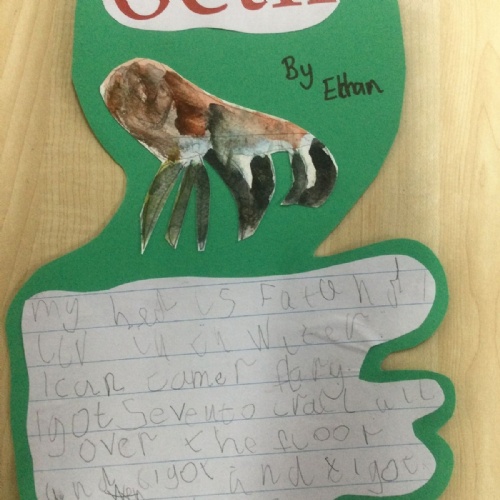 By
Ethan
my hed is Fat and I
liv in Water.
I can camer
I got Seven to crall all
over the floor
and I got and I got